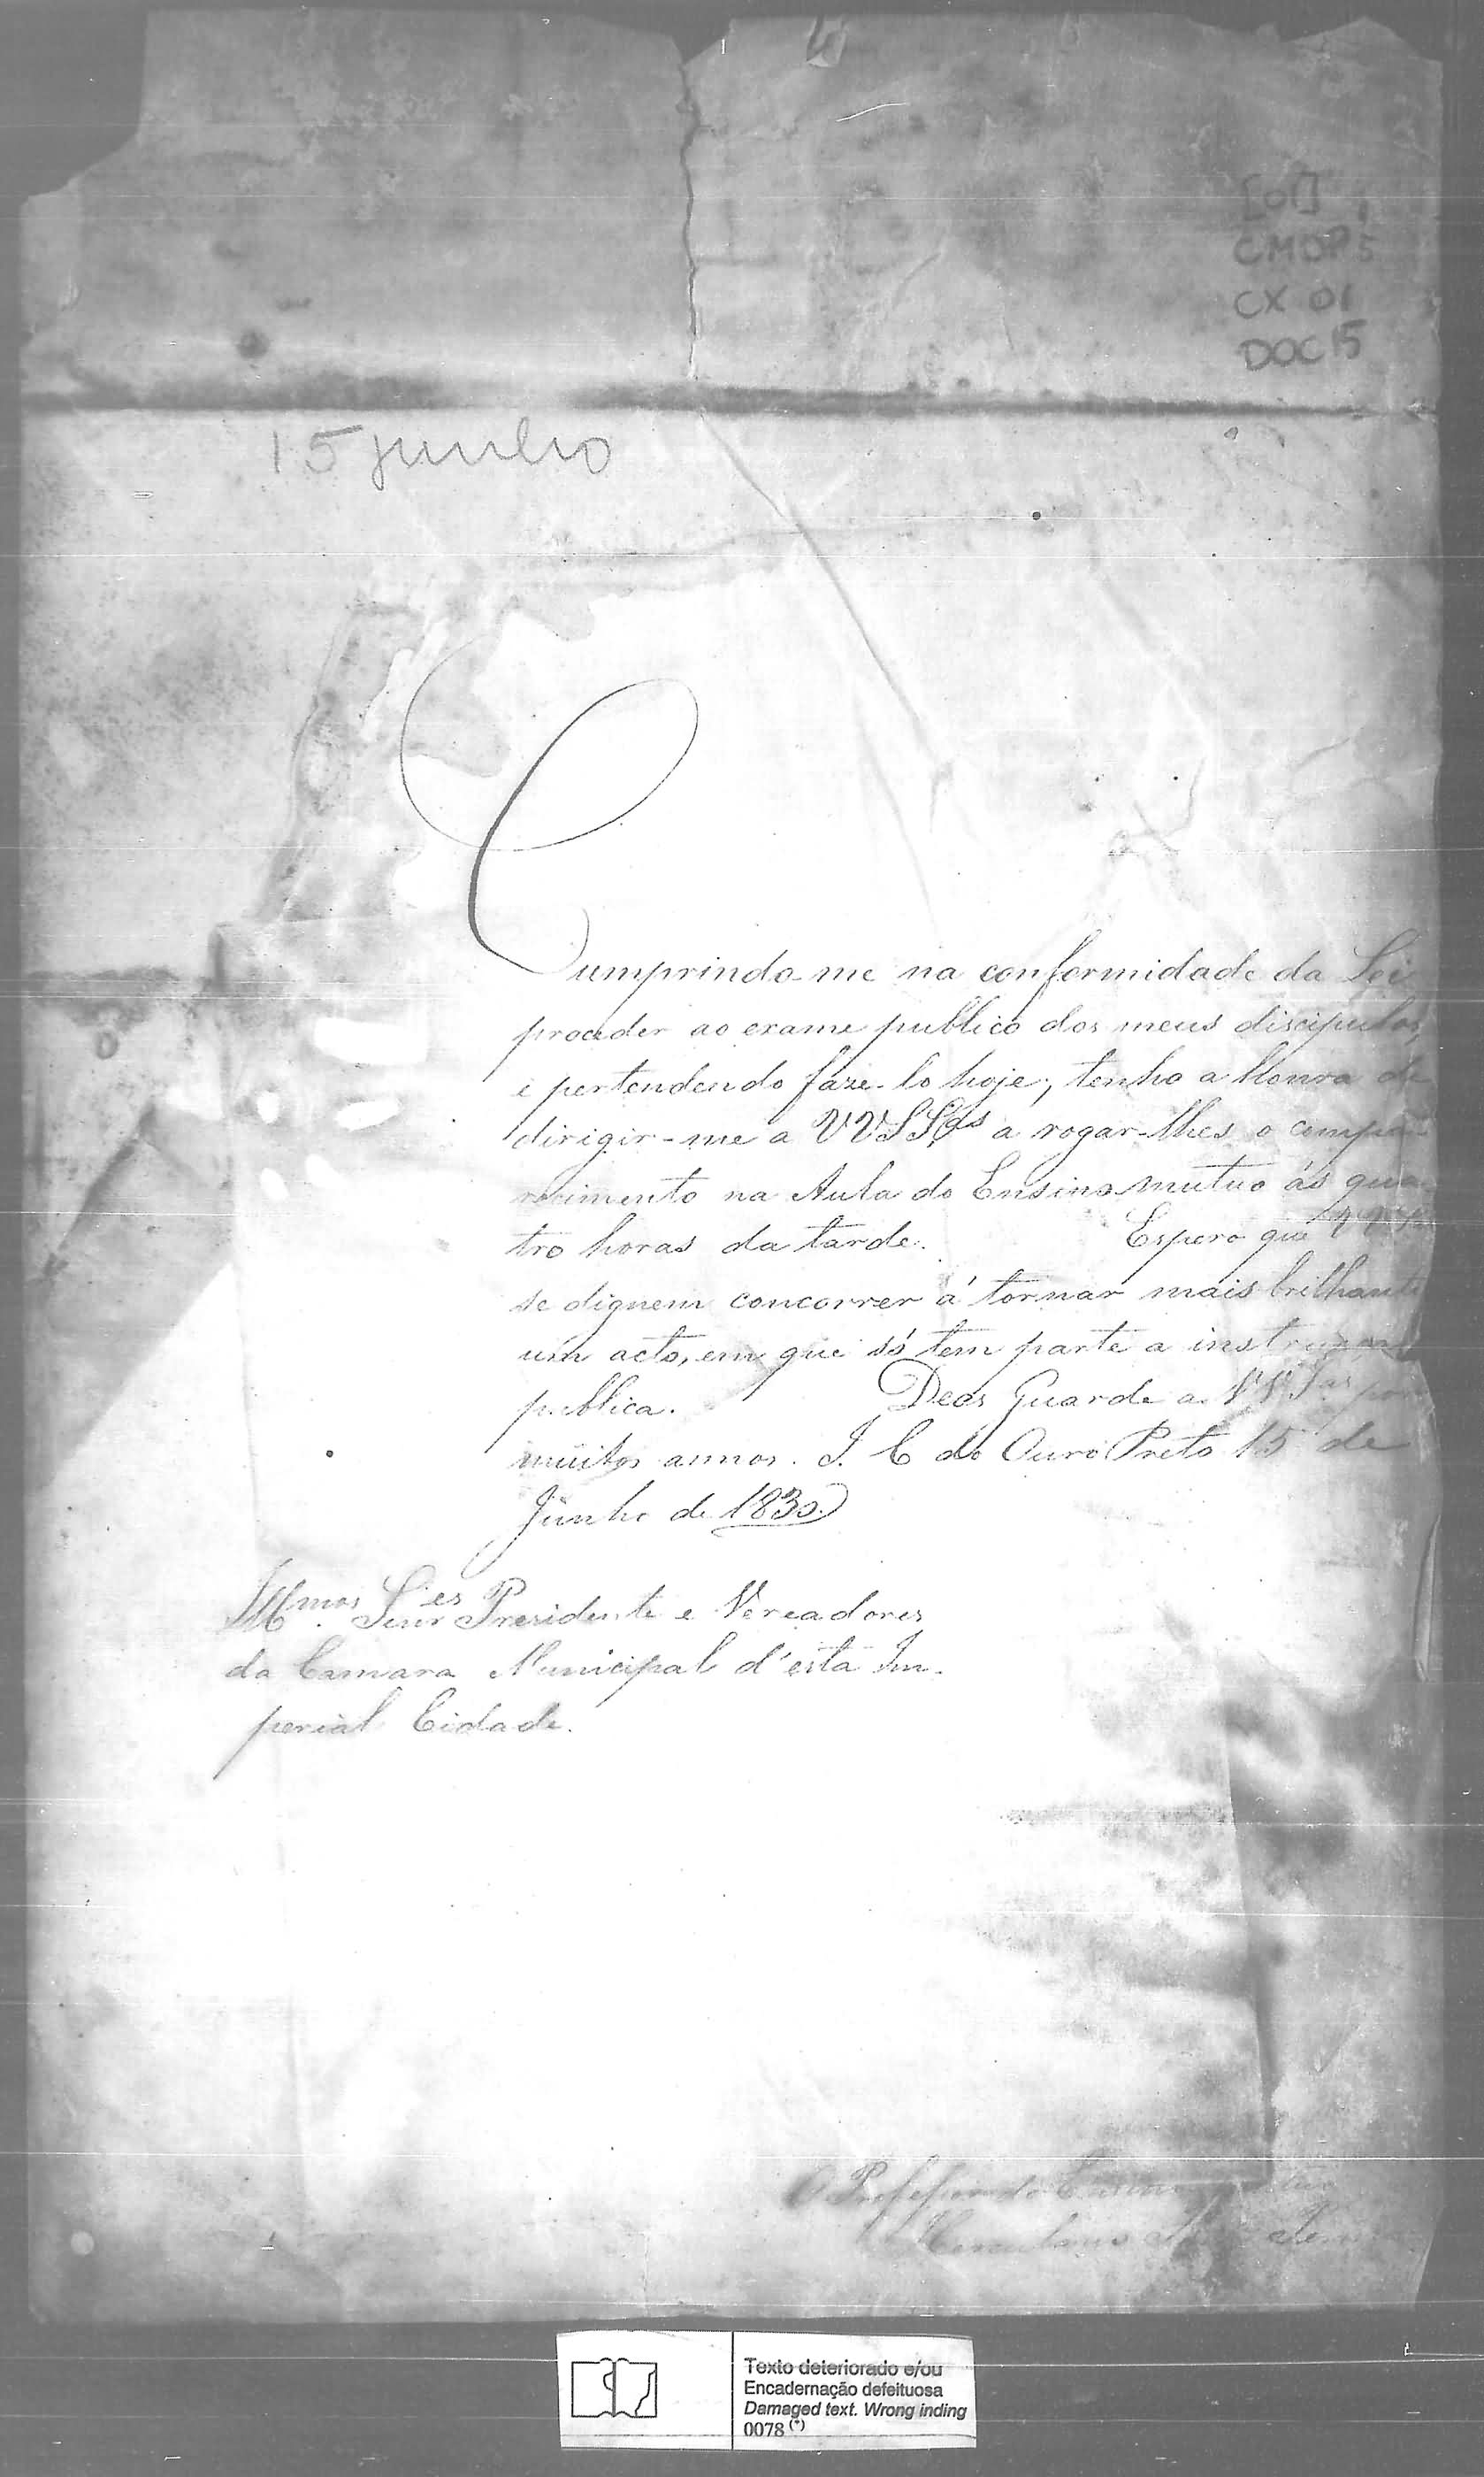 [01]
CMOP
CX 01
DOC 15
15 junho
Cumprindo-me na conformidade da Lei
proceder ao exame publico dos meus discipulos,
e pertendendo faze-lo hoje, tenho a Honra de
dirigir-me a VVSSas a rogar-lhes o compa-
recimento na Aula do Ensino mutuo ás qua-
tro horas da tarde. Espero que
se dignem concorrer á tornar mais brilhante
um acto, em que só tem parte a instrucção
publica. Deos Guarde a VVSas por
muitos annos. I. C. do Ouro Preto 15 de
Junho de 1830.
Illmos Senres Presidente e Vereadores
da Camara Municipal d'esta Im-
perial Cidade.
O Professor do Ensino
Herculano
Texto deteriorado e/ou
Encadernação defeituosa
Damaged text. Wrong inding
0078 (*)